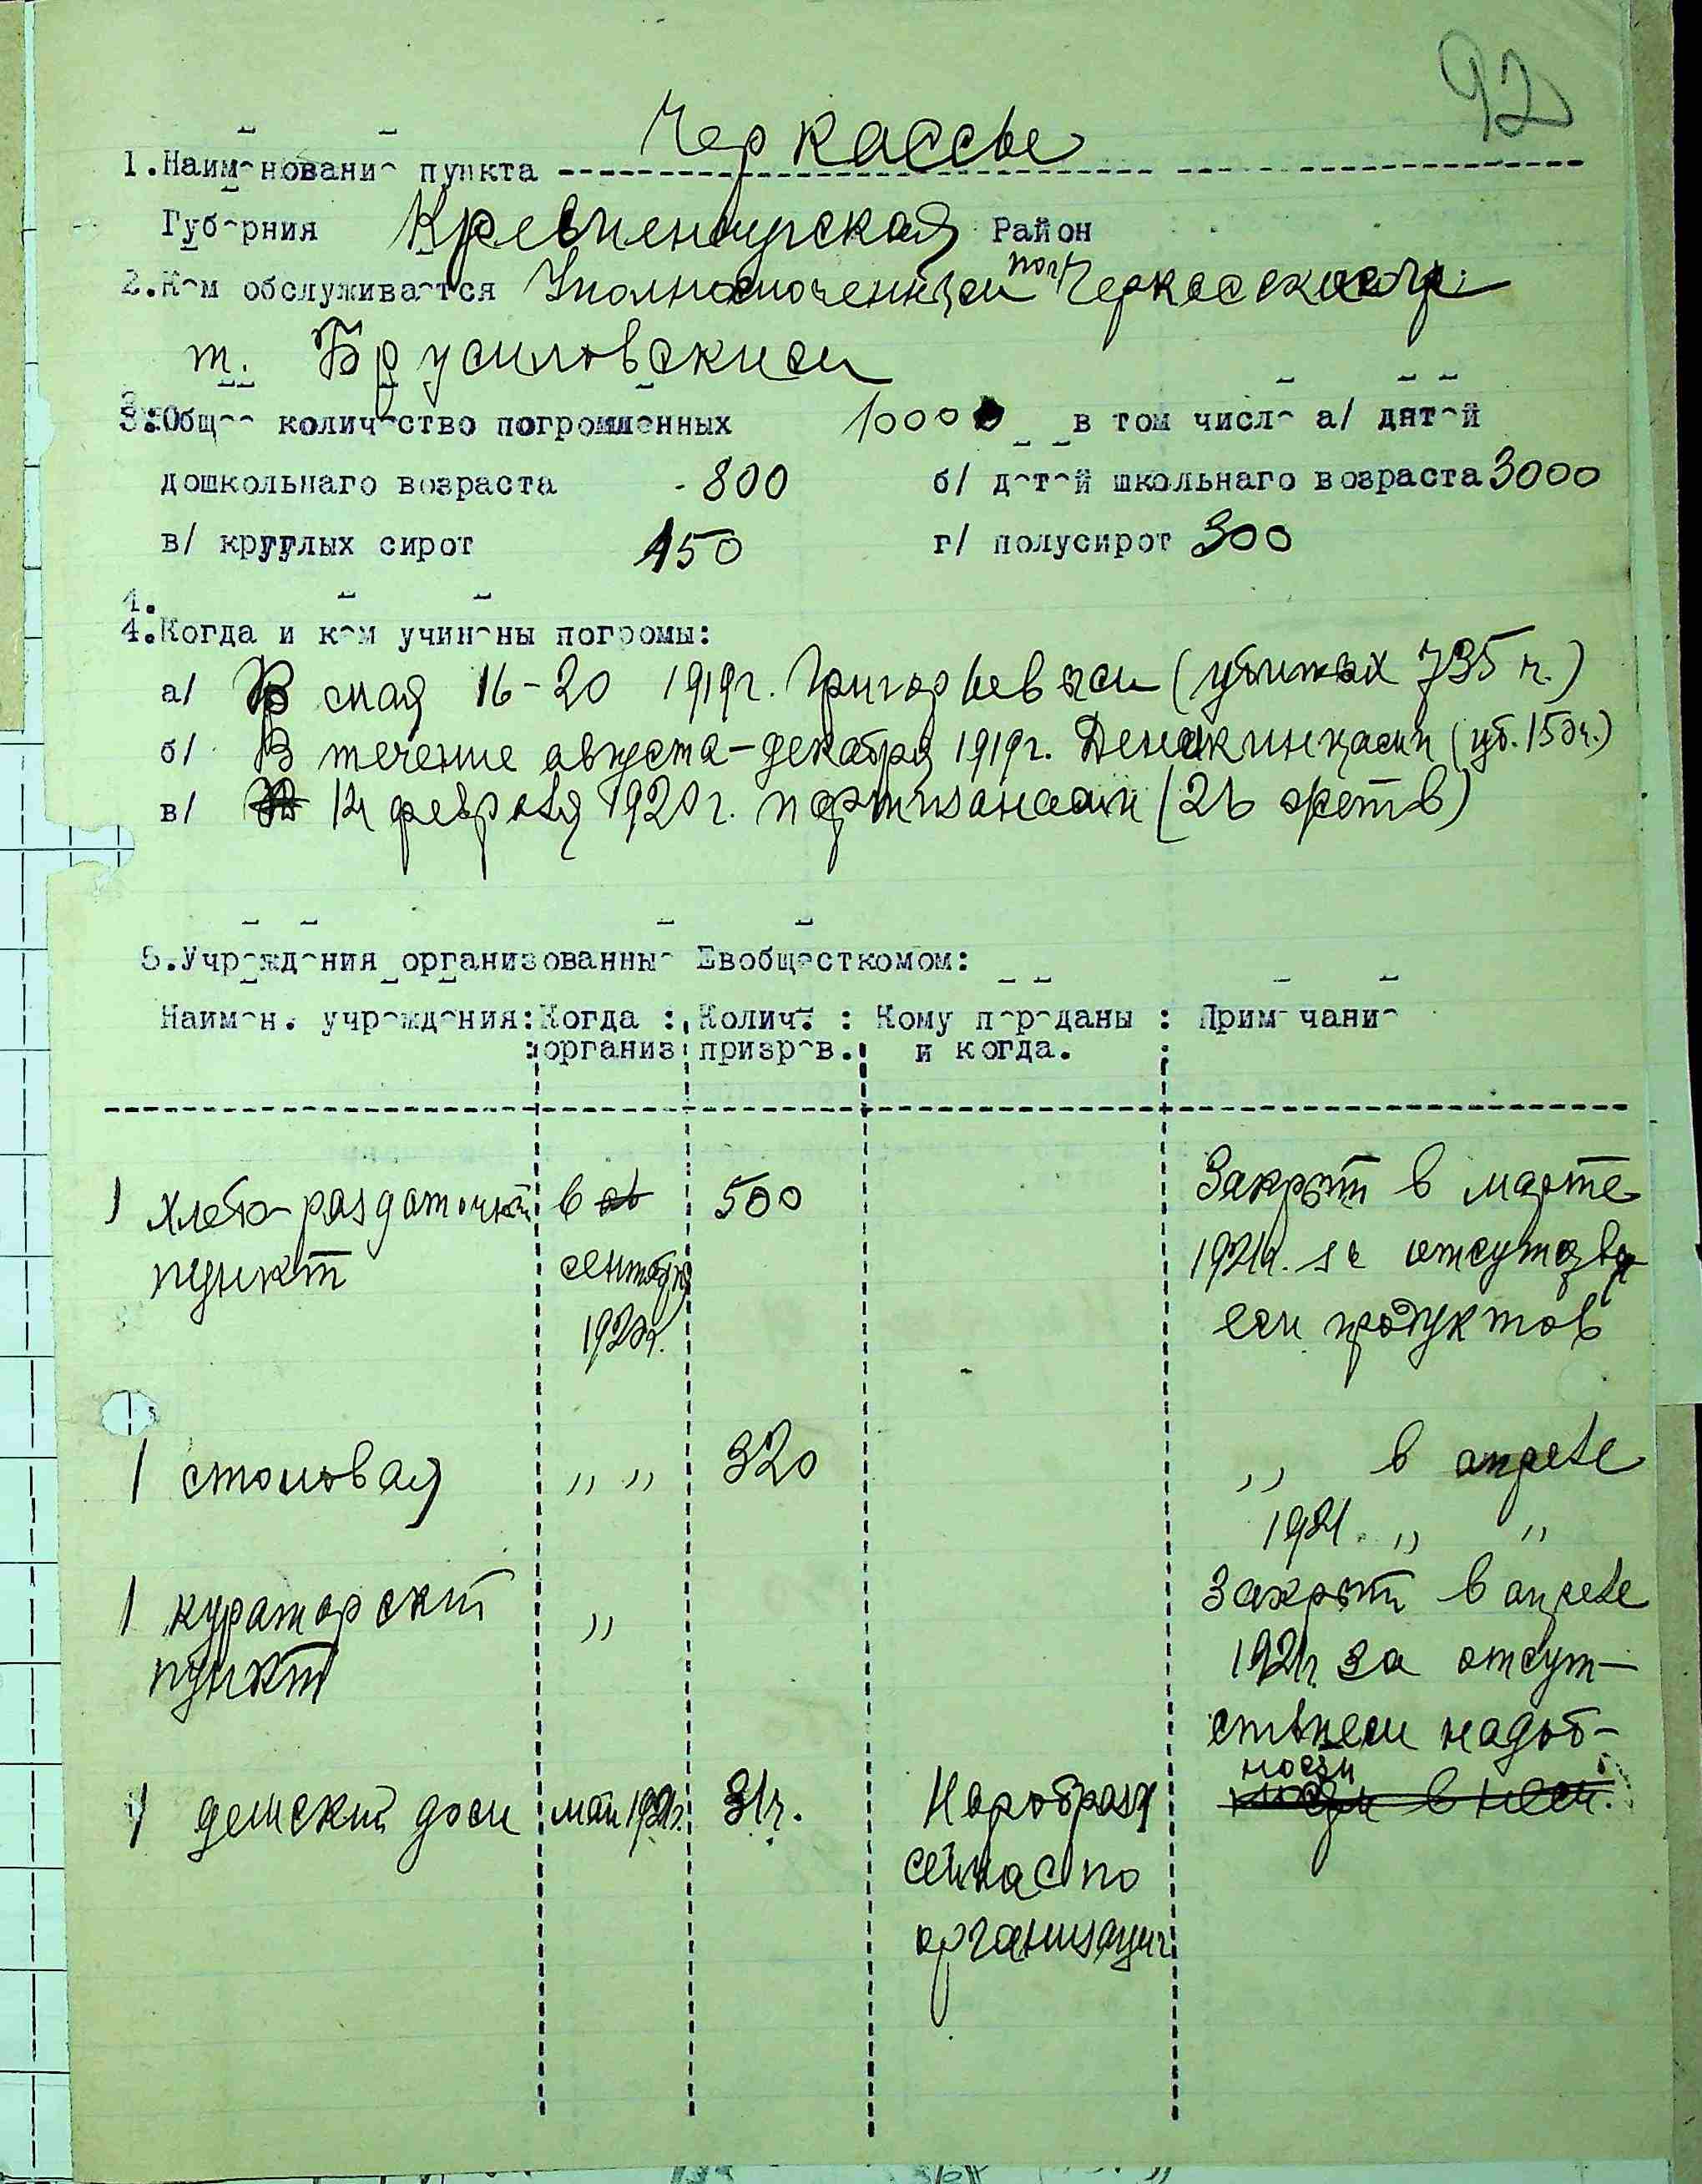 92
1.Наименование пункта Черкассы
Губерния Кременчугская Район
2.Кем обслуживается Уполномоченным по Черкасскому
т. Брусиловским
3.Общее количество погромленных 10000 в том числе а/ дятей
дошкольнаго возраста - 800 б/ детей школьнаго возраста 3000
в/ круглых сирот 150 г/ полусирот 300
4.
4.Когда и кем учинены погромы:
а/ В мая 16-20 1919г. Григорьевым (убитых 735 ч.)
б/ В течение августа-декабря 1919г. Деникинцами (уб. 150ч.)
в/ 14 февраля 1920г. партизанами (26 жертв)
5.Учреждения организованные Евобщесткомом:
Наимен. учреждения: Когда : Колич. : Кому переданы : Примечание
:организ призрев. и когда. :
1 хлебо-раздаточный в 500 Закрыт в марте
пункт сентябре 1921г. за отсутстви
1920г. ем продуктов
1 столовая ,, ,, 320 ,, в апреле
1921. ,, ,,
1 кураторский ,, Закрыт в апреле
пункт 1921г. за отсут-
ствием надоб-
ности
1 детский дом май 1921г. 31ч. Наробраз
сейчас по
организации